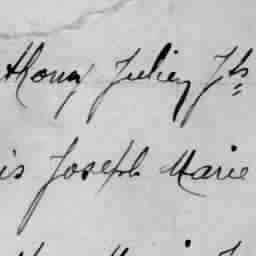 thony Julien Jh
is Joseph Marie